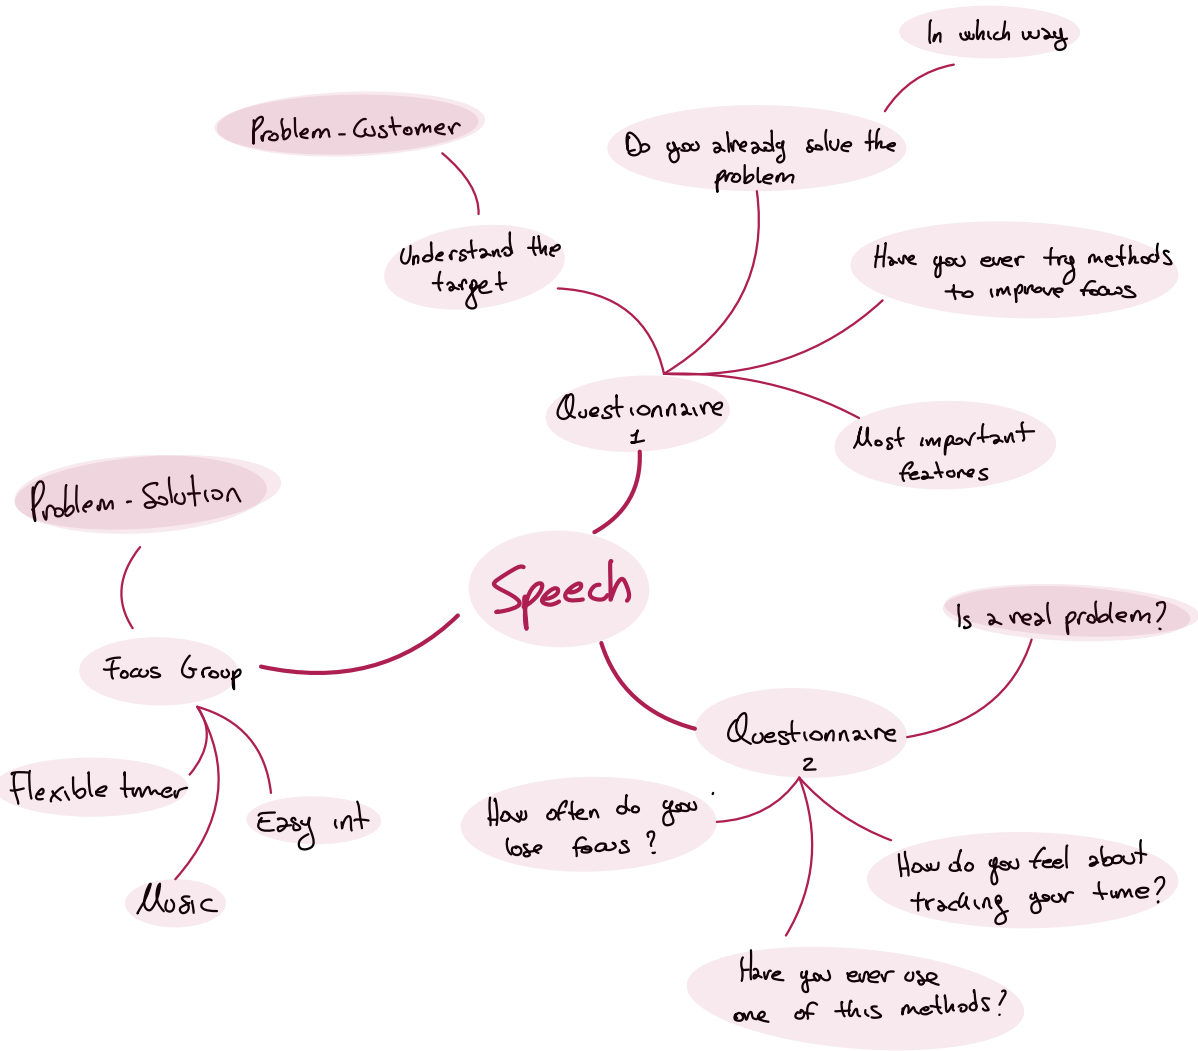 In which way
Problem - Customer
Do you already solve the
problem
Understand the
target
Have you ever try methods
to improve focus
Questionnaire
1
Most important
features
Problem - Solution
Speech
Is a real problem?
Focus Group
Questionnaire
2
Flexible timer
Easy int
Music
How often do you
lose focus?
How do you feel about
tracking your time?
Have you ever use
one of this methods?